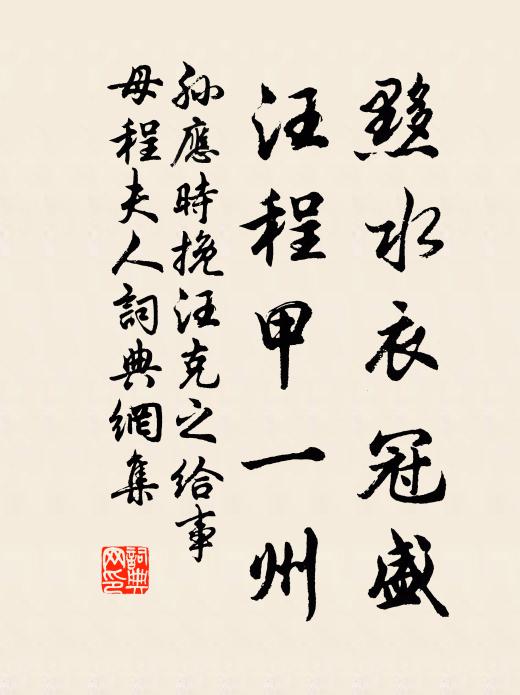 黟水衣冠盛
汪程甲一州
孙應時挽汪克之给事
母程夫人詞典網集
詞典网印